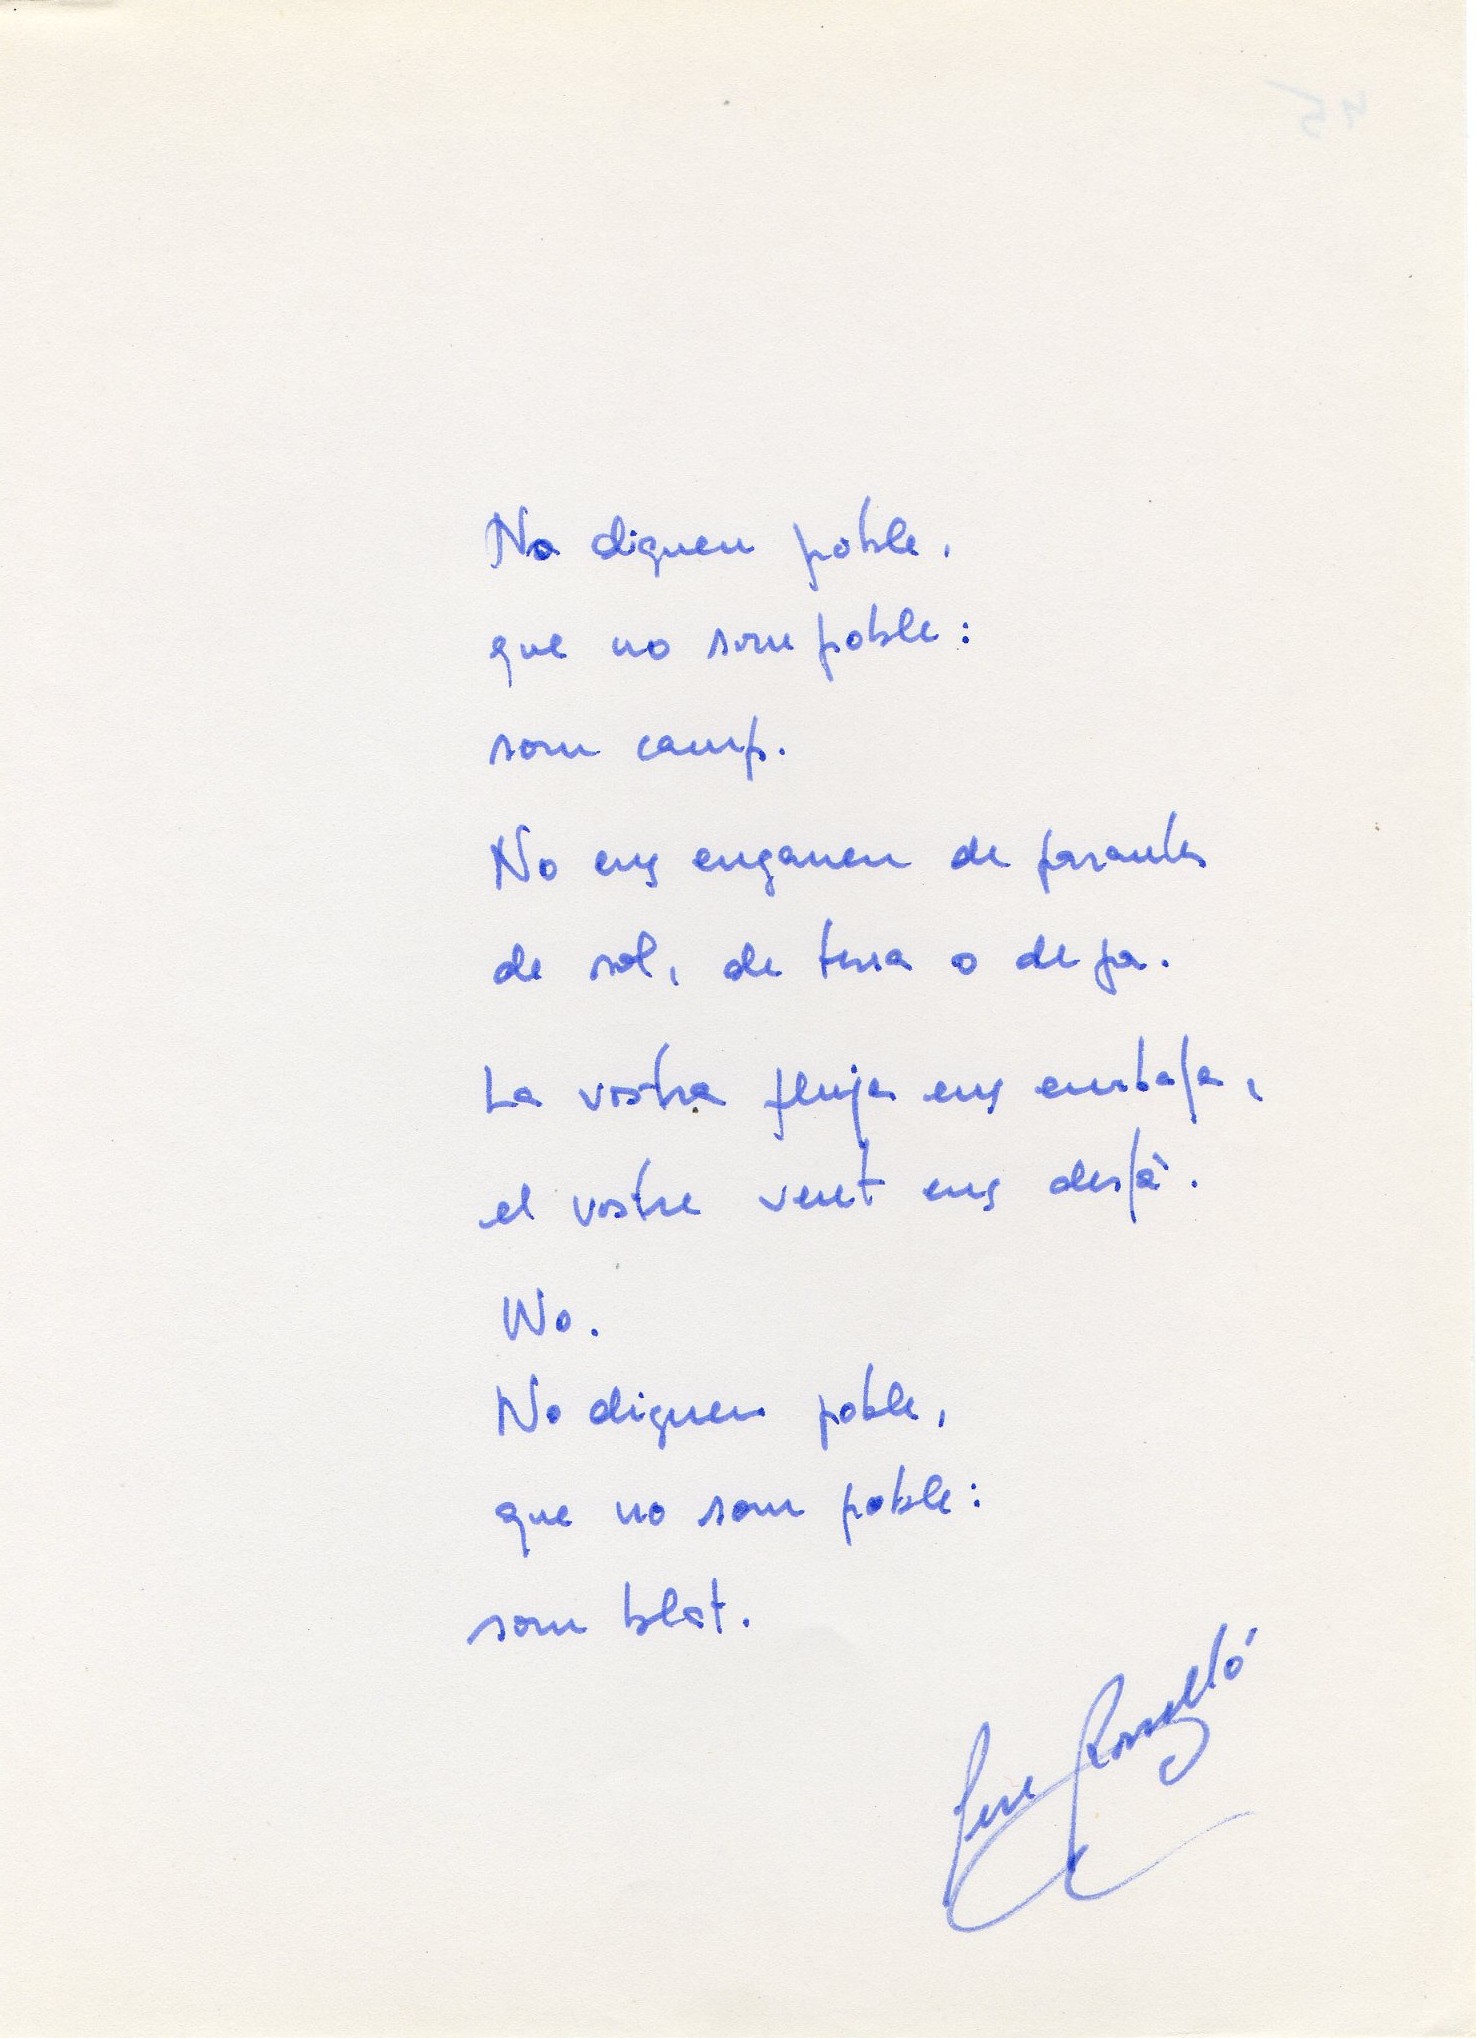 No digueu poble,
que no som poble:
som camp.
No ens enganeu de paraules
de sol, de terra o de pa.
La vostra pluja ens embafa,
el vostre vent ens desfà.
No.
No digueu poble,
que no som poble:
som blat.
Pere Rosselló